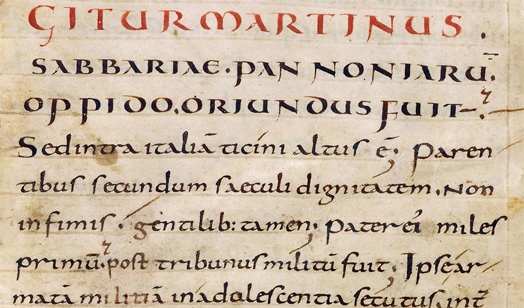 GITUR MARTINUS.
SABBARIAE. PANNONIARŪ.
OPPIDO. ORIUNDUS FUIT.
Sed intra italiā ticini altus ē. Paren
tibus secundum saeculi dignitatem. Non
infimis. gentilib: tamen. Pater ei miles
primū. post tribunus militū fuit. Ipse ar
matā militiā in adolescentia secutus. int